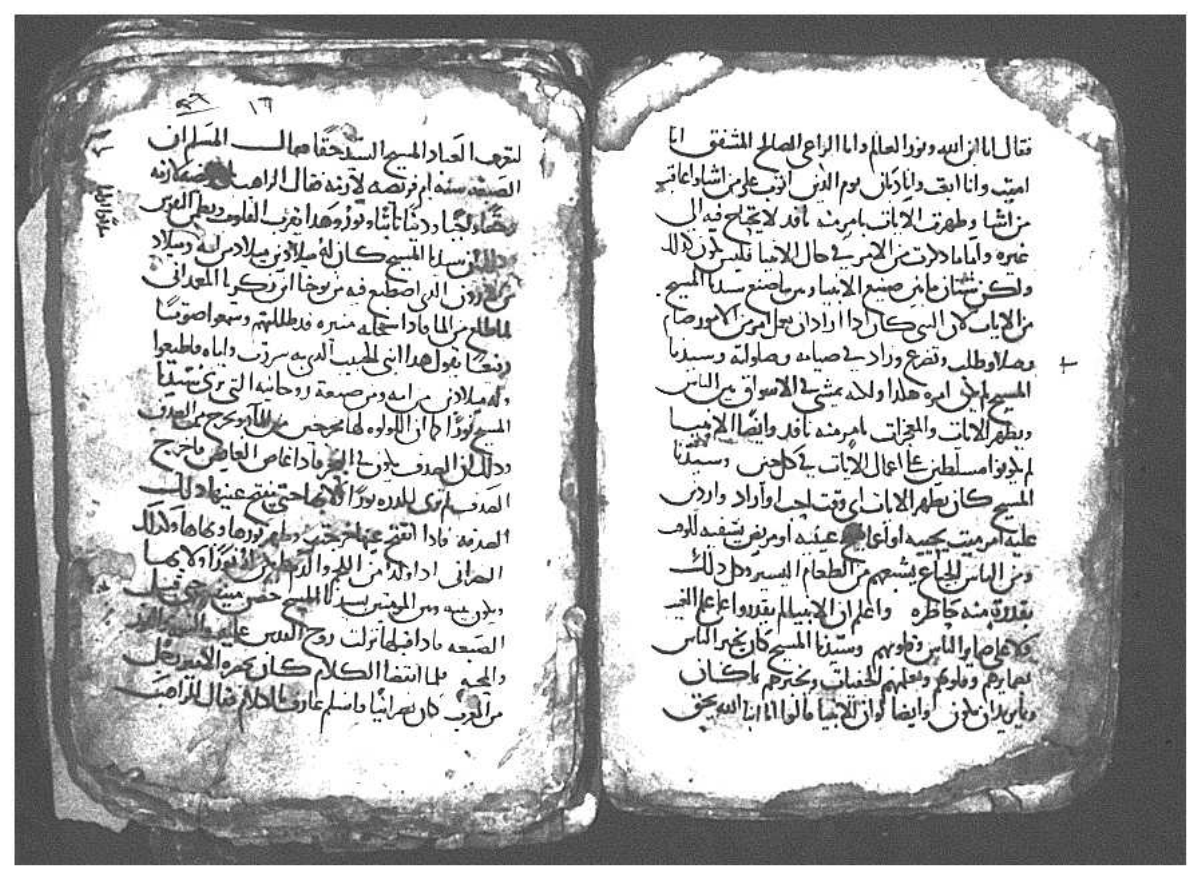 فقال انا ابن الله ونور العالم وانا الراعي الصالح المشفق انا
اميت وانا ابعث وانا ديان يوم الدين اتوب على من اشا واعاقب
من اشا وظهرت الايات بامر منه نافد لا يحتاج فيه الى
غيره واما ما ذكرت من الامر في حال الانبيا فليس يكون كذلك
ولكن شتان ما بين صنيع الانبيا وبين ما صنع سيدنا المسيح
من الايات لان النبي كان اذا اراد ان يعمل امر من الامور صام
وصلا وطلب وتضرع وزاد في صيامه وصلواته وسيدنا
المسيح لم يكن امره هكذا ولكنه يمشي في الاسواق بين الناس
ويظهر الايات والمعجزات بامر منه نافد وايضا الانبيا
لم يكونوا مسلطين على اعمال الايات في كل حين وسيدنا
المسيح كان يظهر الايات اي وقت احب واراد واردين
عليه امر ميت يحييه او اعمى عينيه او مريض يشفيه الوف
ومن الناس الجياع يشبعهم من الطعام اليسير وكل ذلك
بقدرة منه حاضره واعلم ان الانبيا لم يقدروا على علم الغيب
ولا على ضماير الناس وقلوبهم وسيدنا المسيح كان يخبر الناس
بضمايرهم وقلوبهم ويعلمهم الخفيات ويخبرهم بما كان
وما يريد ان يكون وايضا لو ان الانبيا قالوا انا ابنا الله بحق
١٦
العباد المسيح السيد حقا فقال المسلم ان
الصبغه سنه ام فريضه لازمه قال الراهب لازمه
سيدنا المسيح كان له ميلادين ميلاد من امه وميلاد
من الاردن الذي اصطبغ فيه من يوحنا ابن زكريا المعمداني
فلما طلع من الما فاذا سحابه منيره قد ظللتهم وسمعوا صوتا
يقول هذا ابني الحبيب الذي به سررت واياه فاطيعوا
وله ميلادين من امه ومن صبغة روحانيه التي ترى سيدنا
المسيح نورا كما ان اللولوه لها مخرجين من الما ويخرج من الصدف
وذلك ان الصدف يكون في البحر فاذا غاص الغايص فاخرج
الصدف لم ترى للدره نورا ولا بها حتى ينفتح عنها ذلك
الصدفه فاذا انفتح عنها خرجت وظهر نورها وبهاها وكذلك
النصراني اذا ولد من اللحم والدم لم يكن له نورا ولا بها
ويكون بينه وبين المومنين بسيدنا المسيح حتى يقبل
الصبغه فاذا قبلها نزلت روح القدس عليه
والمحبه فلما انقضا الكلام كان بحضرة الامير رجل
من العرب كان نصرانيا واسلم عارف بالكلام فقال للراهب